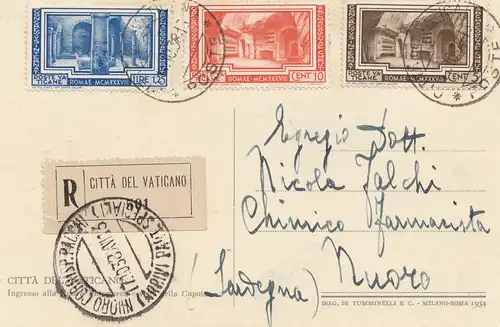 POSTE VATICANE
LIRE 1.25
ROMAE-MCMXXXVIII
POSTE VATICANE
CENT. 10
ROMAE-MCMXXXVIII
POSTE VATICANE
CENT. 5
ROMAE-MCMXXXVIII
POSTE
R
CITTÀ DEL VATICANO
Egregio Dott.
Nicola Falchi
Chimico Farmacista
Nuoro
(Sardegna)
CITTÀ DEL VATICANO
Ingresso alla
della Cupola
IMAG. DI TUMMINELLI E C. - MILANO-ROMA 1934